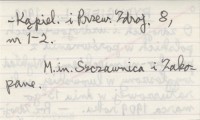 - Kąpiel. i Przew. Zdroj. 8,
nr 1-2.
M.in. Szczawnica i Zako-
pane.